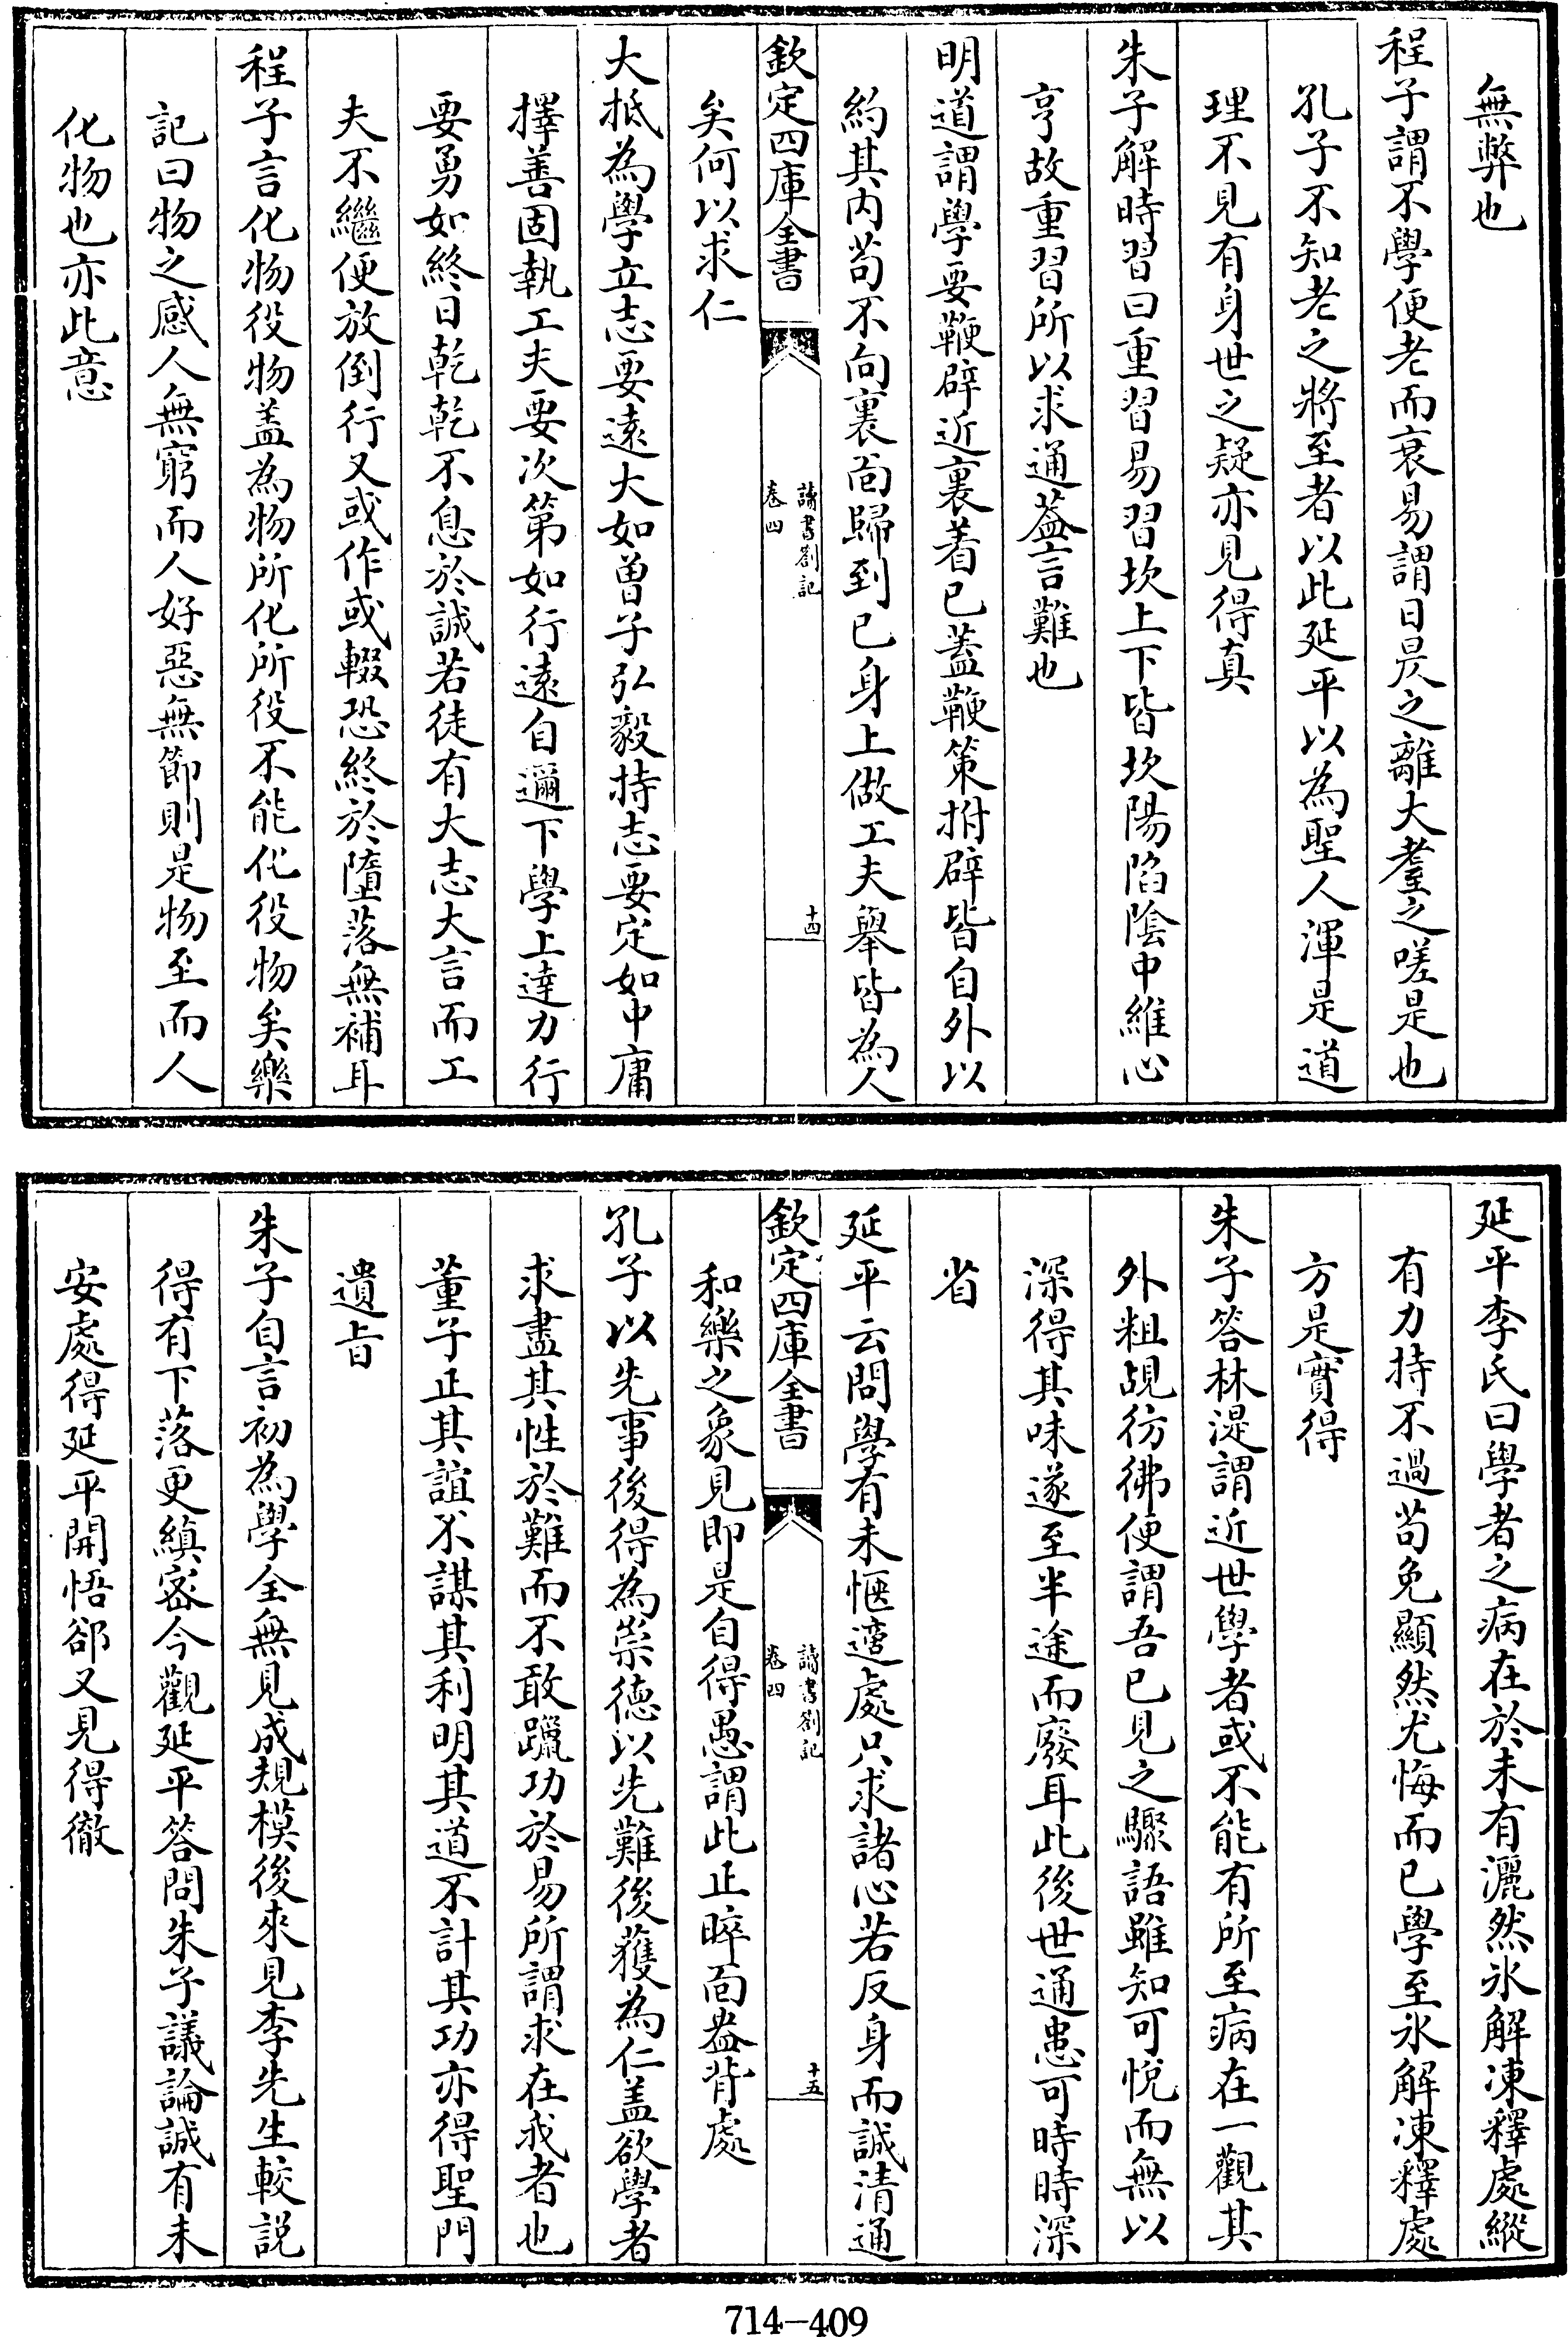 無弊也
程子謂不學便老而衰易謂日昃之離大耋之嗟是也
孔子不知老之將至者以此延平以為聖人渾是道
理不見有身世之疑亦見得真
朱子解時習曰重習易習坎上下皆坎陽陷陰中維心
亨故重習所以求通蓋言難也
明道謂學要鞭辟近裏着已蓋鞭策拊辟皆自外以
約其内苟不向裏面歸到已身上做工夫舉皆為人
欽定四庫全書
讀書劄記
卷四
十四
矣何以求仁
大抵為學立志要遠大如曾子弘毅持志要定如中庸
擇善固執工夫要次第如行遠自邇下學上達力行
要勇如終日乾乾不息於誠若徒有大志大言而工
夫不繼便放倒行又或作或輟恐終於墮落無補耳
程子言化物役物盖為物所化所役不能化役物矣樂
記曰物之感人無窮而人好惡無節則是物至而人
化物也亦此意
延平李氏曰學者之病在於未有灑然氷解凍釋處縱
有力持不過苟免顯然尤悔而已學至氷解凍釋處
方是實得
朱子答林湜謂近世學者或不能有所至病在一觀其
外粗覘彷彿便謂吾已見之驟語雖知可悅而無以
深得其味遂至半途而廢耳此後世通患可時時深
省
延平云問學有未愜適處只求諸心若反身而誠清通
欽定四庫全書
讀書劄記
卷四
十五
和樂之象見即是自得愚謂此正睟面盎背處
孔子以先事後得為崇德以先難後獲為仁盖欲學者
求盡其性於難而不敢躐功於易所謂求在我者也
董子正其誼不謀其利明其道不計其功亦得聖門
遺旨
朱子自言初為學全無見成規模後來見李先生較説
得有下落更縝宻今觀延平答問朱子議論誠有未
安處得延平開悟郤又見得徹
714-409